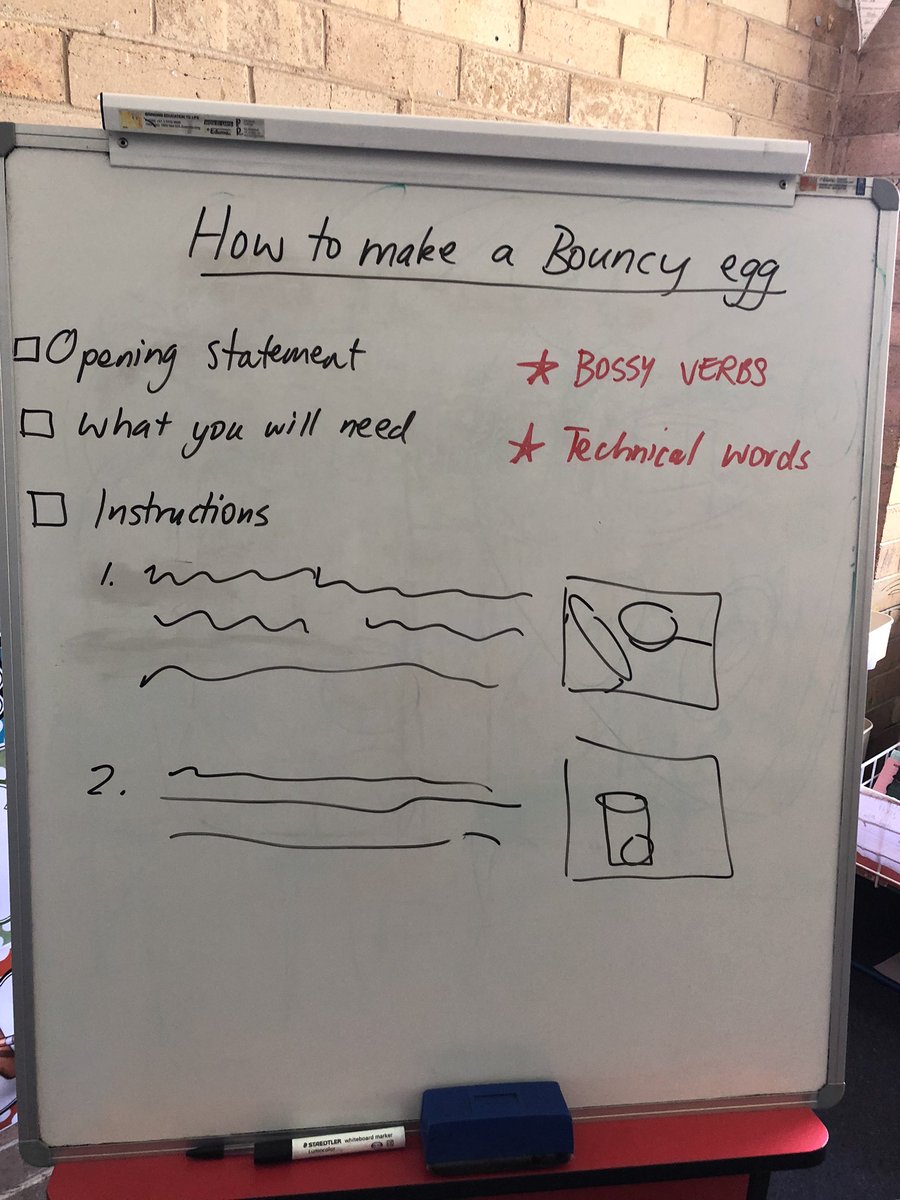 BRINGING EDUCATION TO LIFE
How to make a Bouncy egg
Opening statement
★ BOSSY VERBS
What you will need
★ Technical words
Instructions
1.
2.
STAEDTLER whiteboard marker
Lumocolor